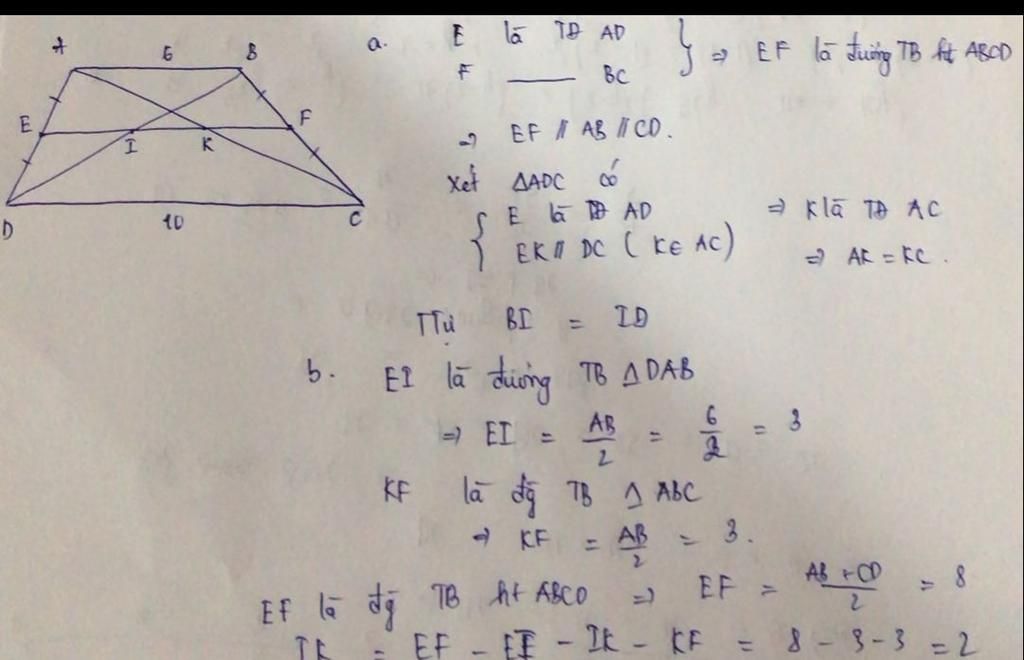 A 6 B
E F
I K
D 10 C
a. E là TĐ AD
F ——— BC } => EF là đường TB ht ABCD
=> EF // AB // CD.
Xét ΔADC có
{ E là TĐ AD => K là TĐ AC
EK // DC ( K∈ AC) => AK = KC .
TTự BI = ID
b. EI là đường TB ΔDAB
=> EI = AB/2 = 6/2 = 3
KF là đg̃ TB Δ ABC
=> KF = AB/2 = 3.
EF là đg̃ TB ht ABCD => EF = AB + CD/2 = 8
IK = EF - EI - IK - KF = 8 - 3 - 3 = 2